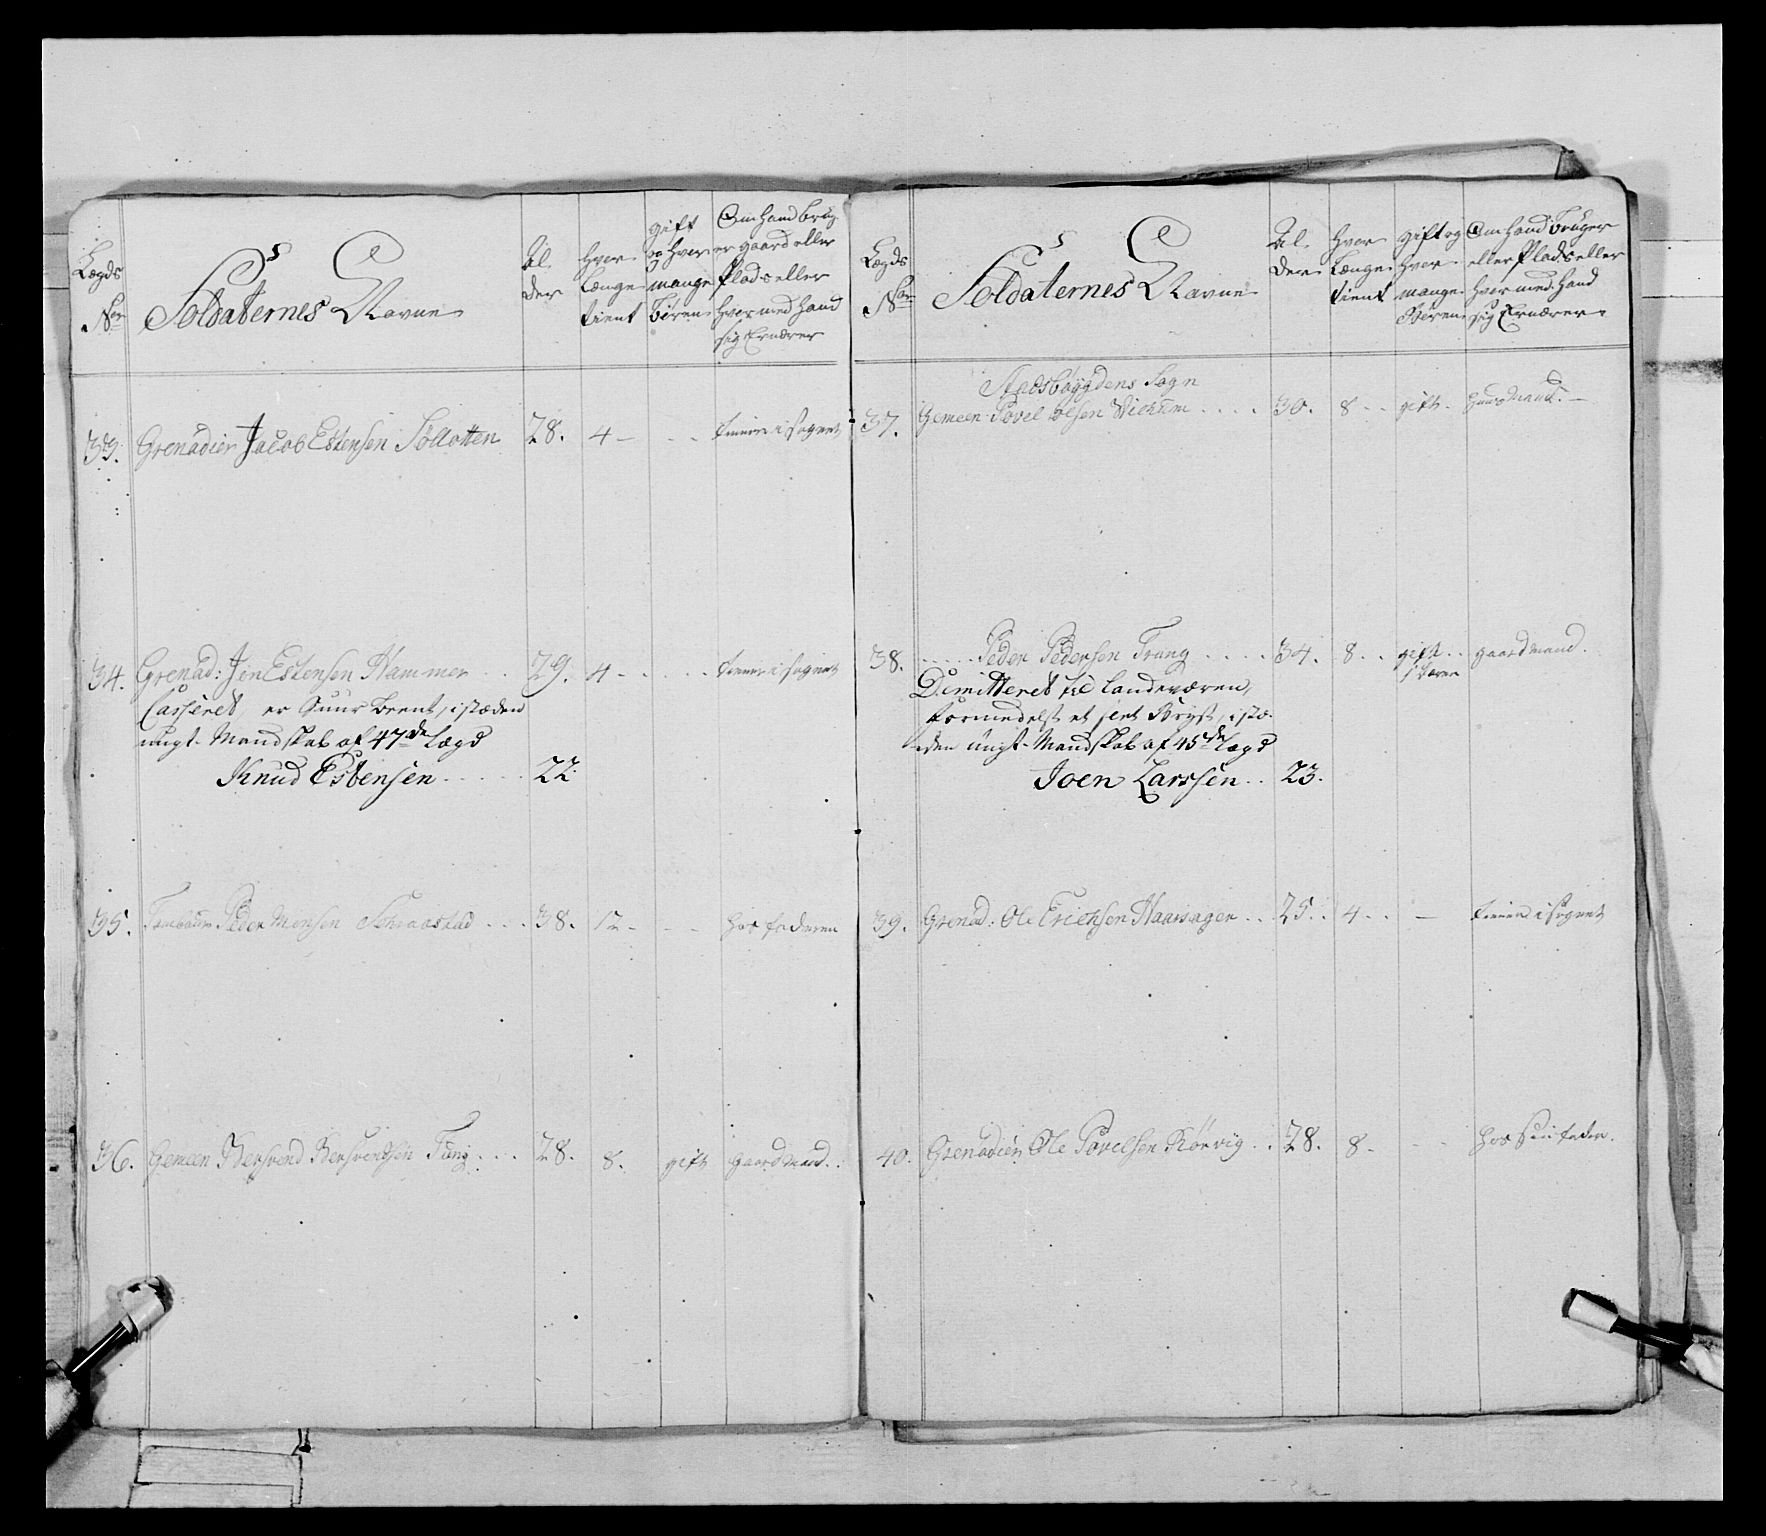 Lægds
No
Soldaternes Navne
Al
der
Hvor
Længe
tient
gift
og Hvor
mange
børen
Om Hand brug
er gaard eller
Plads eller
Hvormed Hand
sig Ernærer
33. Grenadier Jacob Estensen 28. 4 - - - tiener i sognet
34. Grenad: Jon Estensen Hammer . . 29. 4 - - . . . tiener i sognet
Casseret, er Suur beent, i stæden
ungt Mandskab af 47de Lægd
Knud Estensen . . . . . 22.
35. Tambour Peder Monsen . . . 38. 12 - - - hos faderen
36. Gemeen Bersvend Bersvendsen Fung . . . . 28. 8. gift gaardmand.
Lægds
No
Soldaternes Navne
Al
der
Hvor
Længe
tient
gift og
Hvor
mange
Børen
Om Hand bruger
eller Plads eller
Hvormed Hand
sig Ernærer
Stadsbøygdens Sogn
37. Gemeen Povel Olsen . . . . 30. 8 - - gift - Huusmand. -
38. . . . . . Peder Pedersen Trang . . . . 34. 8 . . gift . . gaardmand.
1 børen
Dimitteret til Landeværen,
formedelst et Bryst, i stæ-
den ungt Mandskab af 45de Lægd
Joen Larssen . . 23.
39. Grenad: Ole Erichsen . . 25. . 4 - . - tiener i Sognet
40. Grenadier Ole Povelsen Rørvig . . 28. 8 - - - hos sin fader.